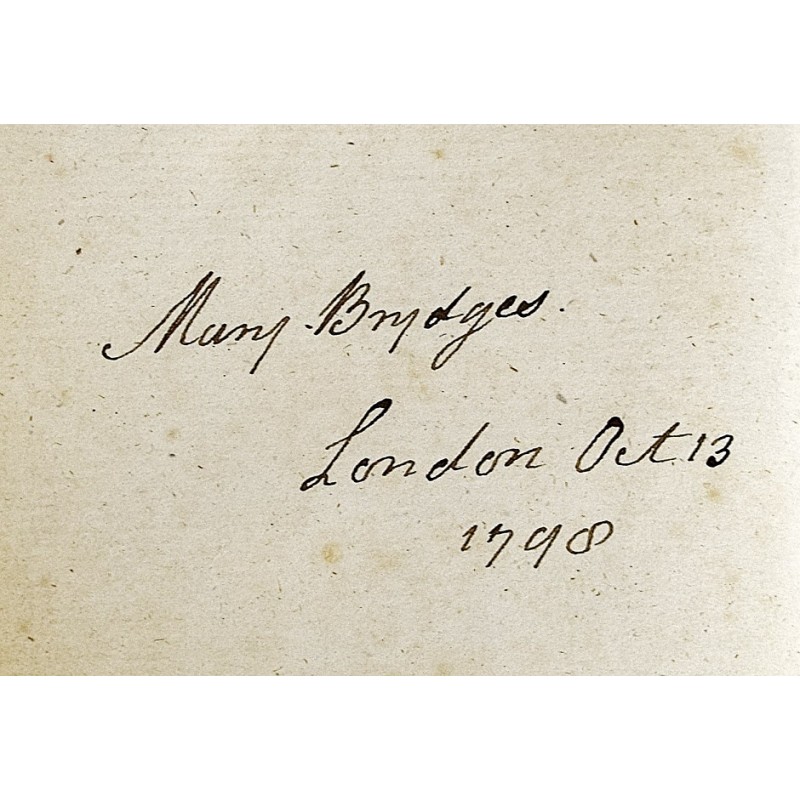 Mary Brydges.
London Oct 13
1798